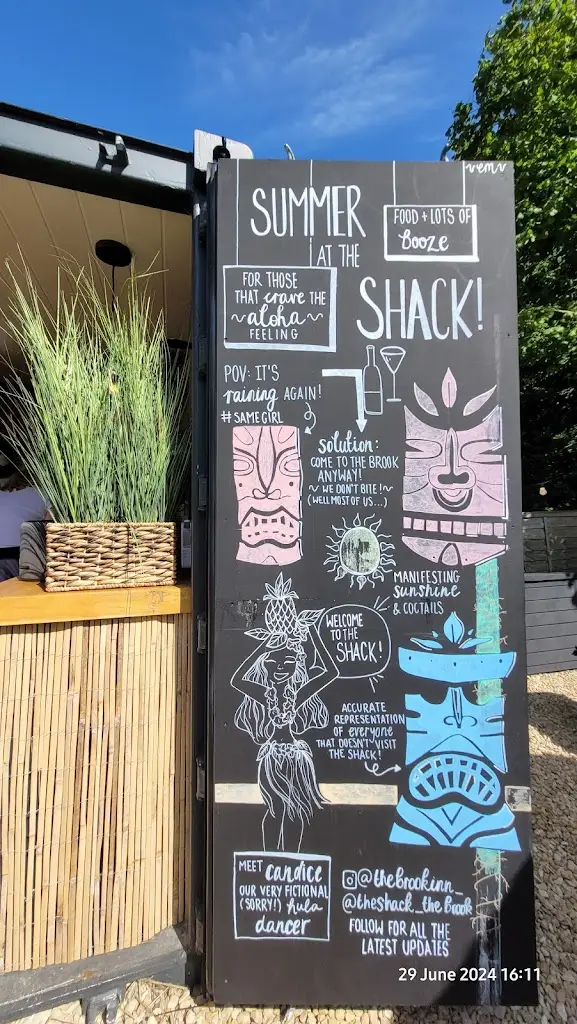 vemv
SUMMER
AT THE
SHACK!
FOOD + LOTS OF
Booze
FOR THOSE
THAT crave THE
~aloha~
FEELING
POV: IT'S
raining AGAIN!
#SAMEGIRL
solution:
COME TO THE BROOK
ANYWAY!
~ WE DON'T BITE! ~
(WELL MOST OF US...)
MANIFESTING
sunshine
& COCTAILS
WELCOME
TO THE
SHACK!
ACCURATE
REPRESENTATION
OF everyone
THAT DOESN'T VISIT
THE SHACK!
MEET candice
OUR VERY FICTIONAL
(SORRY!) hula
dancer
@thebrookinn_
@theshack_the brook
FOLLOW FOR ALL THE
LATEST UPDATES
29 June 2024 16:11